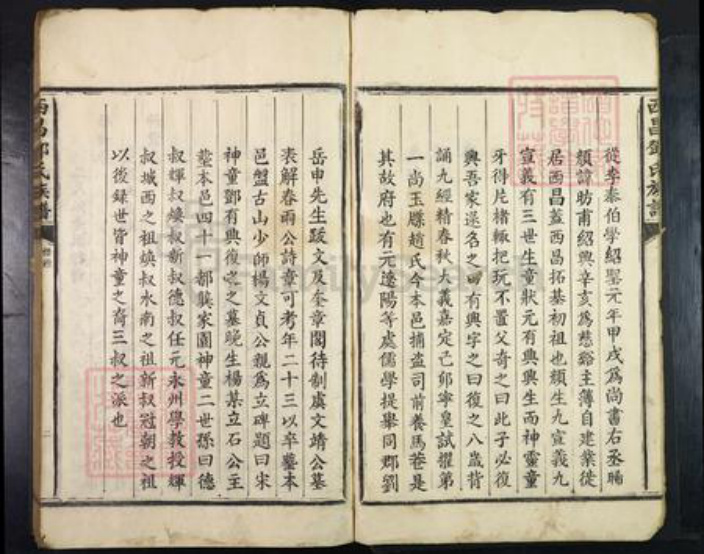 西昌鄧氏族譜
從李泰伯學紹聖元年甲戌為尚書右丞晡
頖諱肪甫紹興辛亥為慈谿主簿自建業徙
居西昌蓋西昌拓基初祖也頖生九宣義九
宣義有三世生童狀元有興興生而神靈童
牙得片楮輙把玩不置父奇之曰此子必復
興吾家遂名之曰有興字之曰復之八歲背
誦九經精春秋大義嘉定己卯寧皇試擢第
一尚玉牒趙氏今本邑捕盗司前養馬巷是
其故府也有元遼陽等處儒學提舉同郡劉
岳申先生跋文及奎章閣待制虞文靖公墓
表解春雨公詩章可考年二十三以卒塟本
邑盤古山少師楊文貞公親為立碑題曰宋
神童鄧有興復之之墓晚生楊某立石公主
塟本邑四十一都龔家園神童二世孫曰德
叔輝叔煥叔新叔德叔任元永州學教授輝
叔城西之祖煥叔水南之祖新叔冠朝之祖
以後録世皆神童之裔三叔之派也
西昌鄧氏族譜
二
FamilySearch